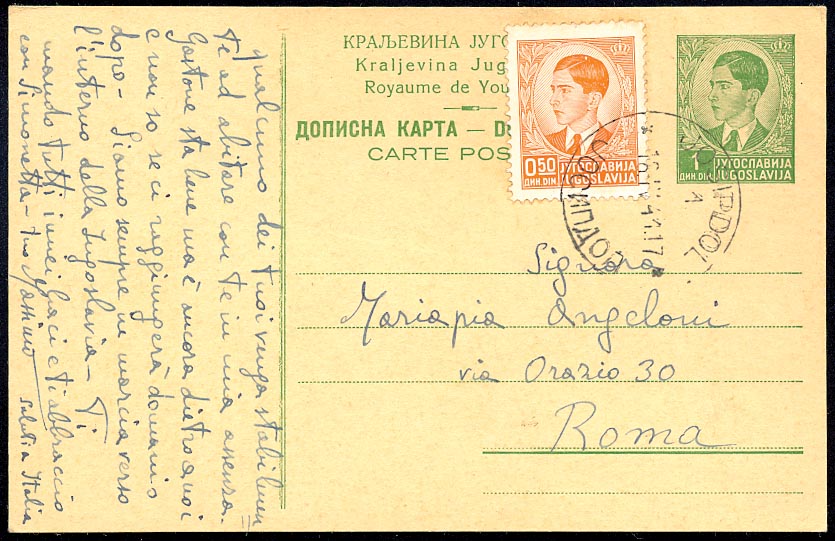 КРАЉЕВИНА ЈУГО
Kraljevina Jug
Royaume de You
ДОПИСНА КАРТА — D
CARTE POS
0.50 ЈУГОСЛАВИЈА
ДИН. DIN. JUGOSLAVIJA
1 ЈУГОСЛАВИЈА
ДИН. DIN. JUGOSLAVIJA
Signora
Mariapia Angeloni
via Orazio 30
Roma
qualcuno dei tuoi venga stabilmen
te ad abitare con te in mia assenza.
Gastone sta bene ma è ancora dietro a noi
e non so se ci raggiungerà domani o
dopo - Siamo sempre in marcia verso
l'interno della Jugoslavia - Ti
mando tutti i miei baci e ti abbraccio
con Simonetta - tuo Massimo
Saluti a Italia